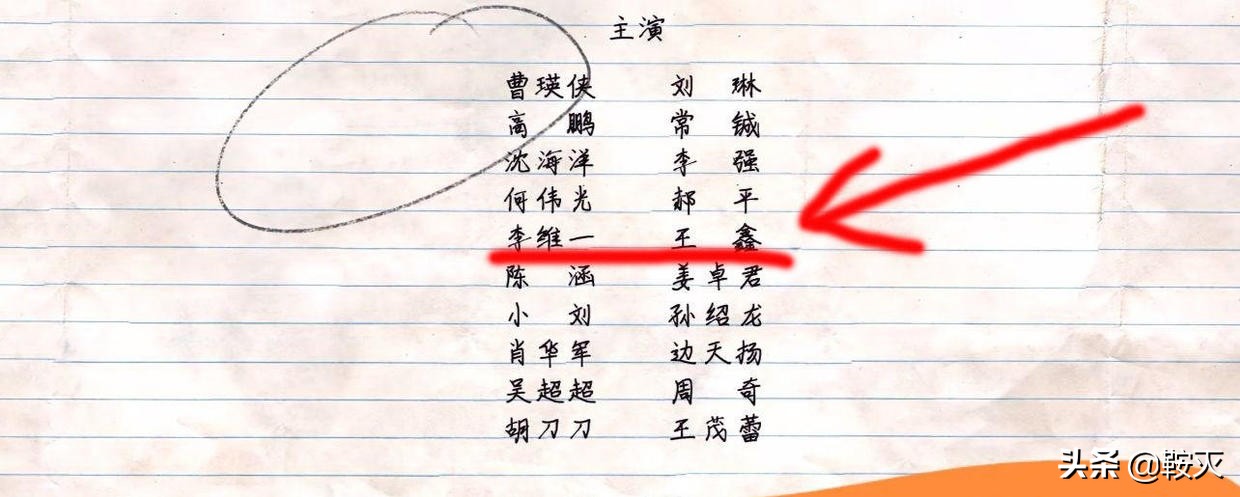 主演
曹瑛侠 刘琳
高鹏 常铖
沈海洋 李强
何伟光 郝平
李维一 王鑫
陈涵 姜卓君
小刘 孙绍龙
肖华军 边天扬
吴超超 周奇
胡刀刀 王茂蕾
头条 @鞍灭